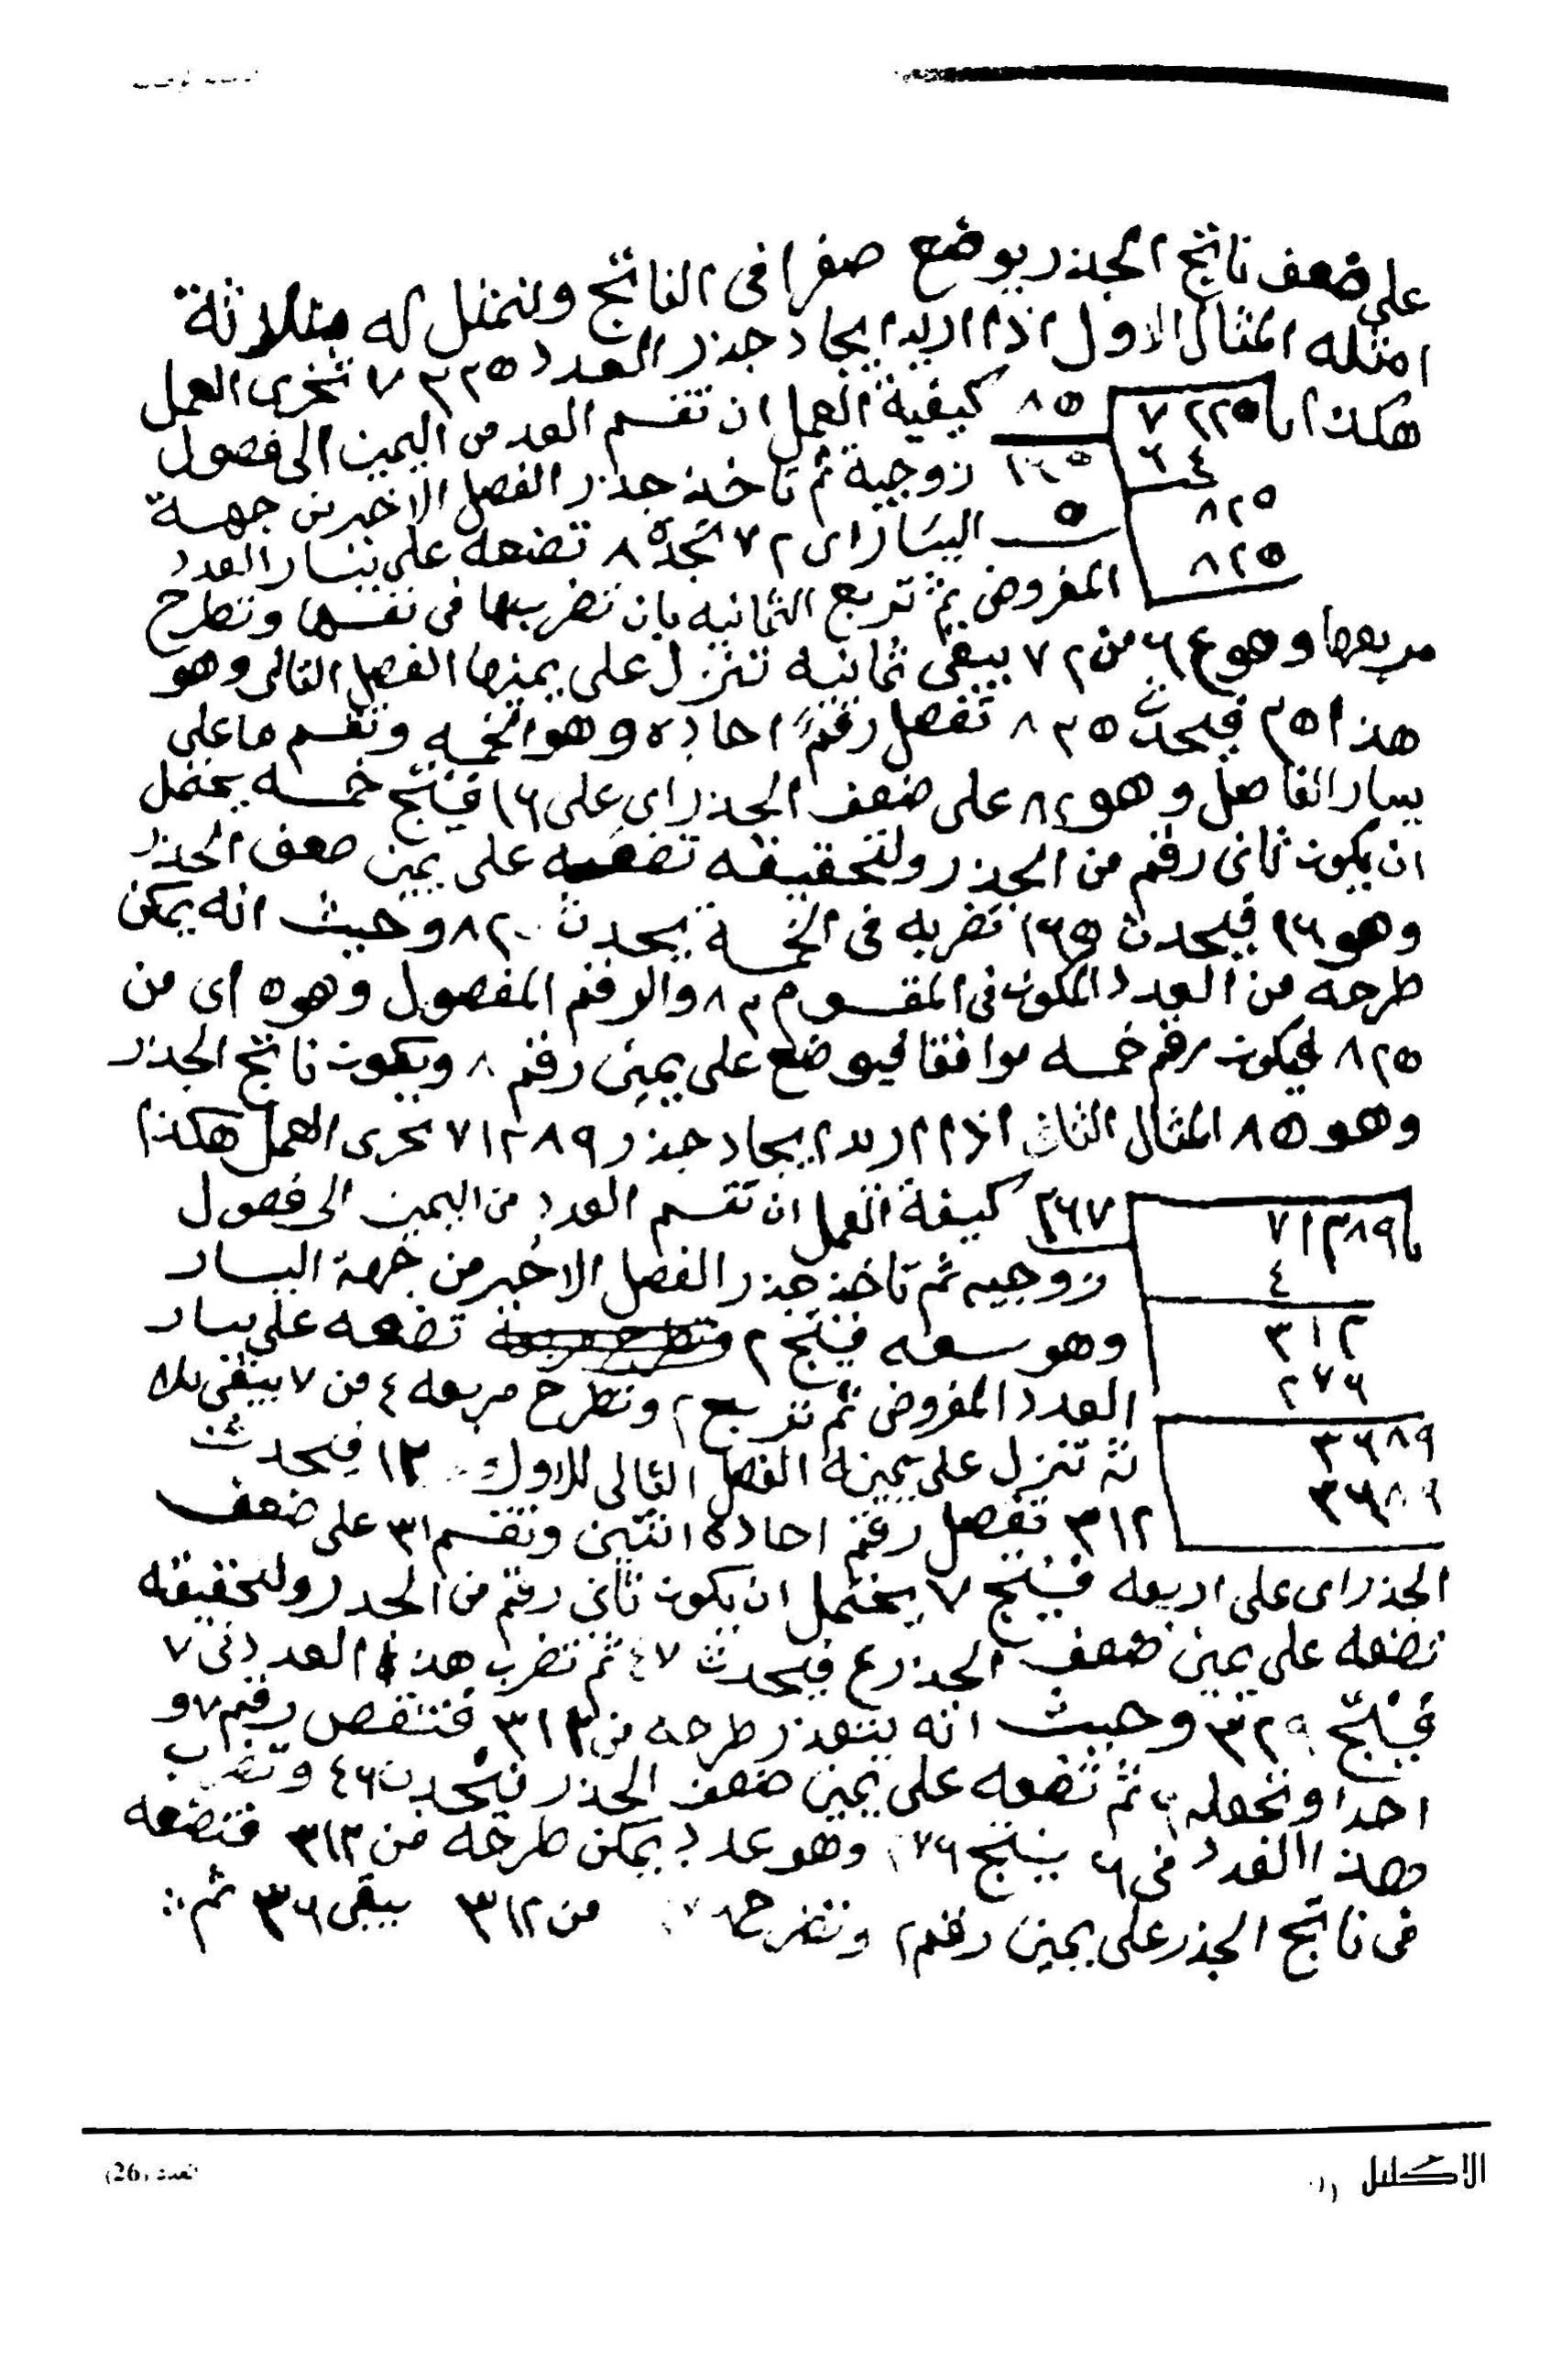 على ضعف ناتج الجذر يوضع صفرا فى الناتج ونمثل له بثلاثة
امثله المثال الاول اذا اريد ايجاد جذر العدد ٧٢٢٥ تجرى العمل
هكذا
٧٢٢٥ ٨٥
٦٤ ١٦٥
٨٢٥ ٥
٨٢٥
كيفية العمل ان تقسم العدد من اليمين الى فصول
زوجية ثم تاخذ جذر الفصل الاخير من جهة
اليسار اى ٧٢ تجده ٨ تضعه على يسار العدد
المفروض ثم تربع الثمانيه بان تضربها فى نفسها وتطرح
مربعها وهو ٦٤ من ٧٢ يبقى ثمانيه تنزل على يمينها الفصل التالى وهو
هذا ٢٥ فيحدث ٨٢٥ تفصل رقم احاده وهو الخمسه وتقسم ما على
يسار الفاصل وهو ٨٢ على ضعف الجذر اى على ١٦ فينتج خمسه يحتمل
ان يكون ثانى رقم من الجذر ولتحقيقه تضعه على يمين ضعف الجذر
وهو ١٦ فيحدث ١٦٥ تضربه فى الخمسة يحدث ٨٢٠ وحيث انه يمكن
طرحه من العدد المكون فى المقسوم ٨٢ والرقم المفصول وهو ٥ اى من
٨٢٥ فيكون رقم خمسه موافقا فيوضع على يمين رقم ٨ ويكون ناتج الجذر
وهو ٨٥ المثال الثانى اذا اريد ايجاد جذر ٧١٢٨٩ تجرى العمل هكذا
٧١٢٨٩ ٢٦٧
٤
٣١٢
٢٧٦
٣٦٨٩
٣٦٨٩
كيفة العمل ان تقسم العدد من اليمين الى فصول
زوجيه ثم تاخذ جذر الفصل الاخير من جهة اليسار
وهو سبعه فينتج ٢ تضعه على يسار
العدد المفروض ثم تربع ٢ وتطرح مربعه ٤ من ٧ يبقى ثلا
ثه تنزل على يمينه الفصل التالى للاول ١٢ فيحدث
٣١٢ تفصل رقم احاده اثنين وتقسم ٣١ على ضعف
الجذر اى على اربعه فينتج ٧ يحتمل ان يكون ثانى رقم من الجذر ولتحقيقه
تضعه على يمين ضعف الجذر ٤ فيحدث ٤٧ ثم تضرب هذا العدد فى ٧
فينتج ٣٢٩ وحيث انه يتعذر طرحه من ٣١٢ فتنقص رقم ٧ و
احدا وتجعله ٦ ثم تضعه على يمين ضعف الجذر فيحدث ٤٦ وتضرب
هذا العدد فى ٦ ينتج ٢٧٦ وهو عدد يمكن طرحه من ٣١٢ فتضعه
فى ناتج الجذر على يمين رقم ٢ وتطرح من ٣١٢ يبقى ٣٦ ثم
الاكليل
العدد (26)